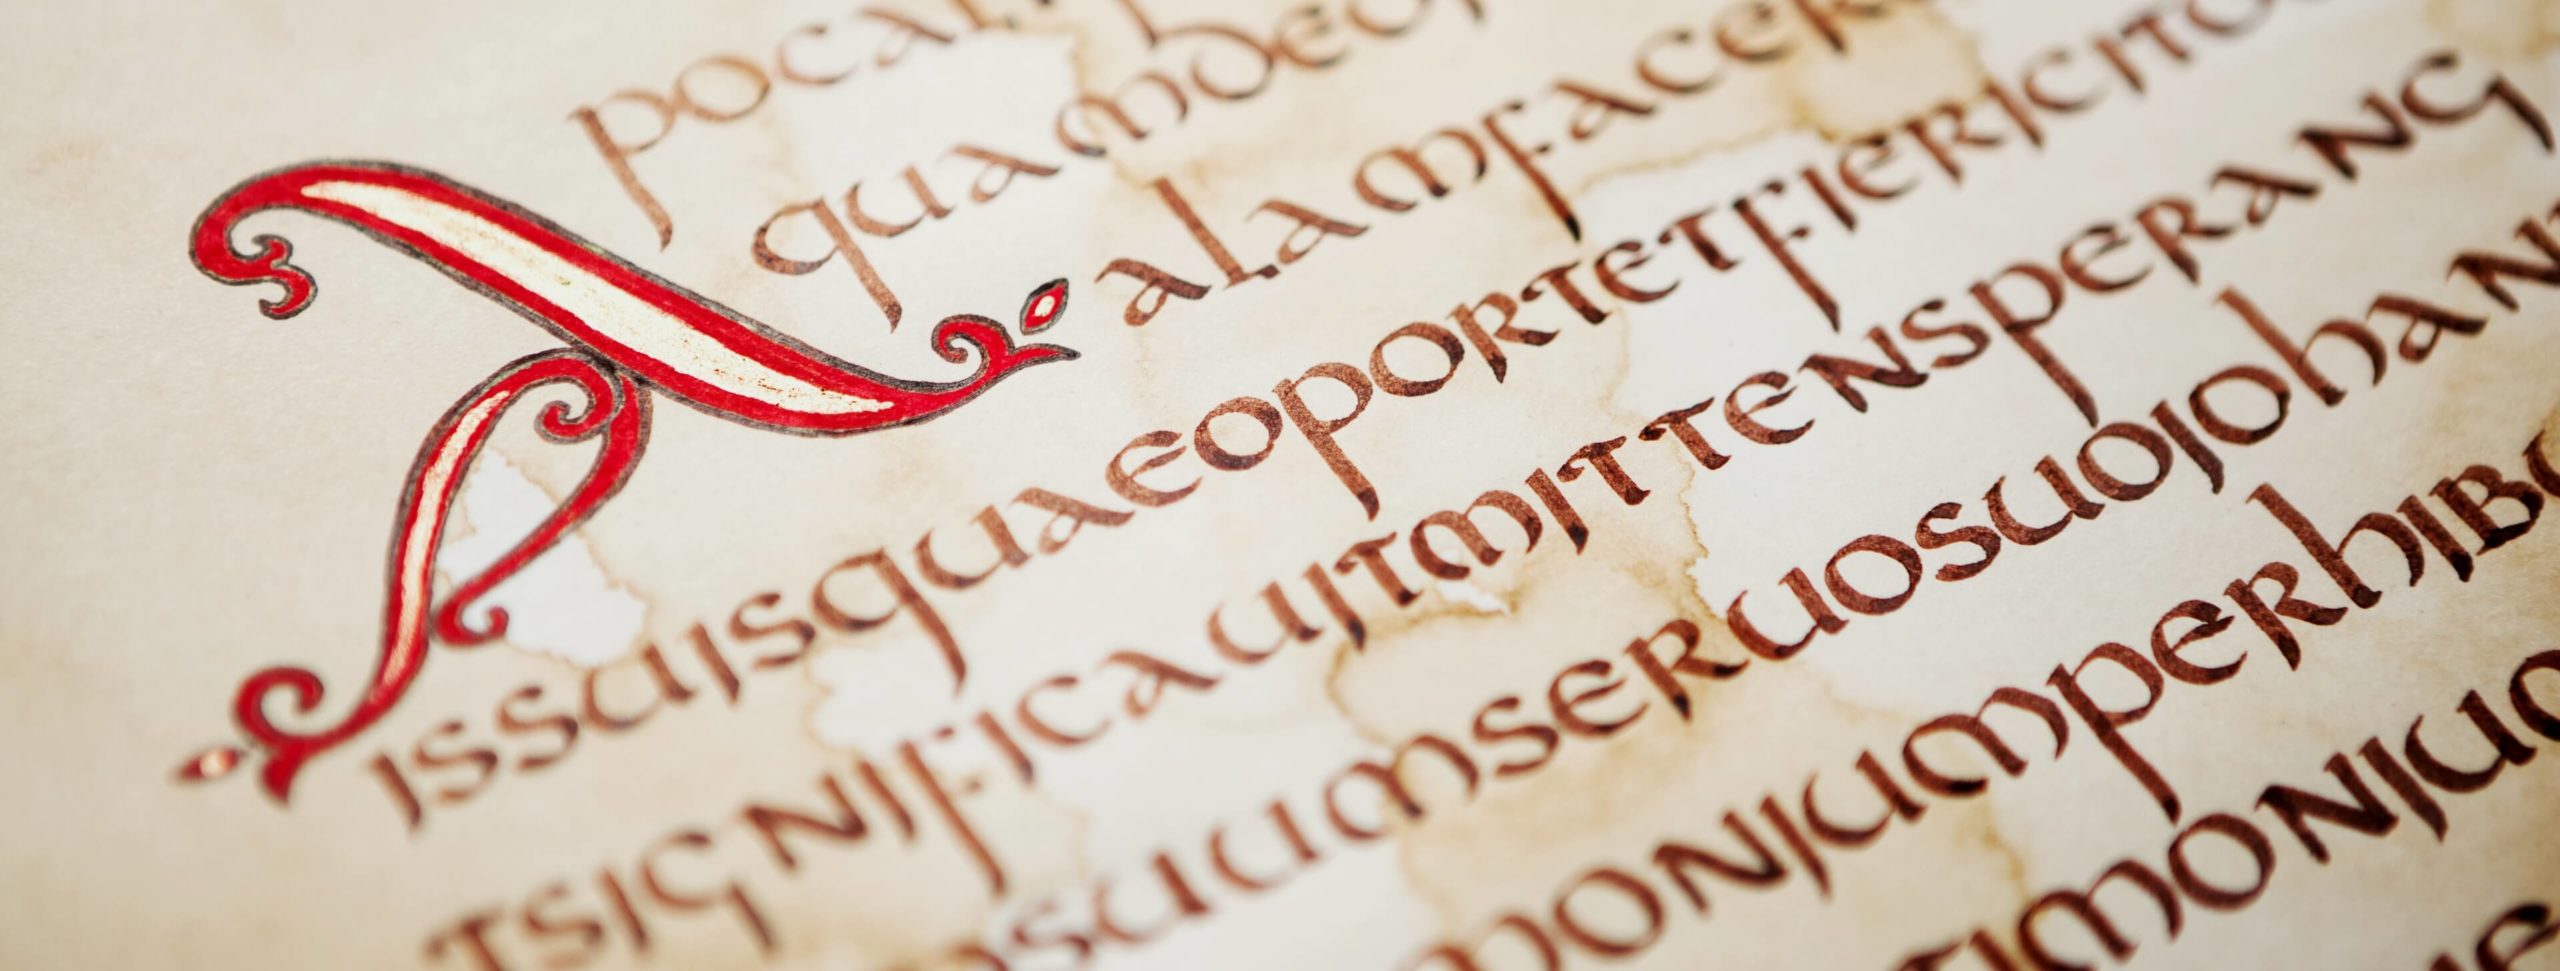 Apocal
quamde
alamfacer
issuisquaeoportetfiericito
tsignificauitmittensperang
suumseruosuoiohan
moniumperhibu
timoniu